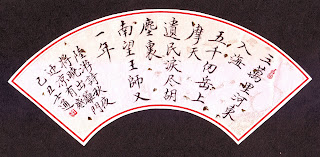 三萬里河東
入海
五千仞岳上
摩天
遺民淚尽胡
塵裏
南望王師又
一年
陸游詩秋夜
將曉出籬門
迎涼有感
己丑